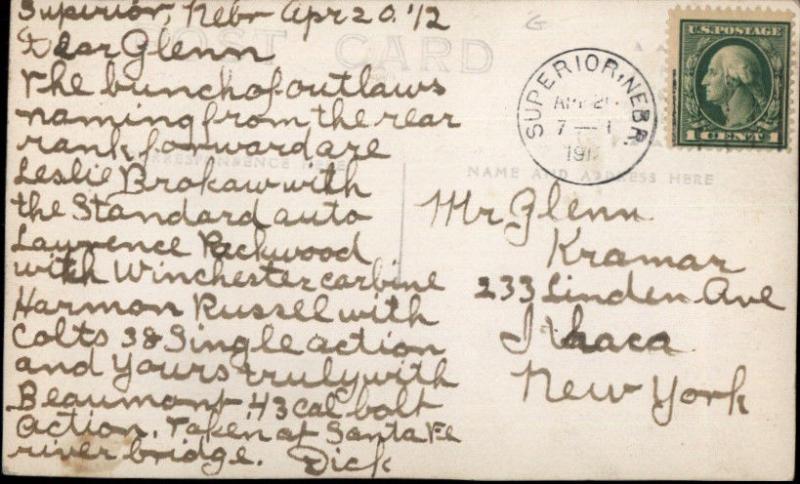 Superior, Nebr Apr 20. '12
Dear Glenn
The bunch of outlaws
naming from the rear
rank forward are
Leslie Brokaw with
the Standard auto
Lawrence Packwood
with Winchester carbine
Harmon Russel with
Colts 38 Single action
and Yours truly with
Beaumont .43 cal bolt
action. Taken at Santa Fe
river bridge. Dick
POST CARD
CORRESPONDENCE HERE
NAME AND ADDRESS HERE
SUPERIOR, NEBR.
7 — 1
U.S. POSTAGE
1 CENT 1
Mr Glenn
Kramar
233 Linden Ave
Ithaca
New York